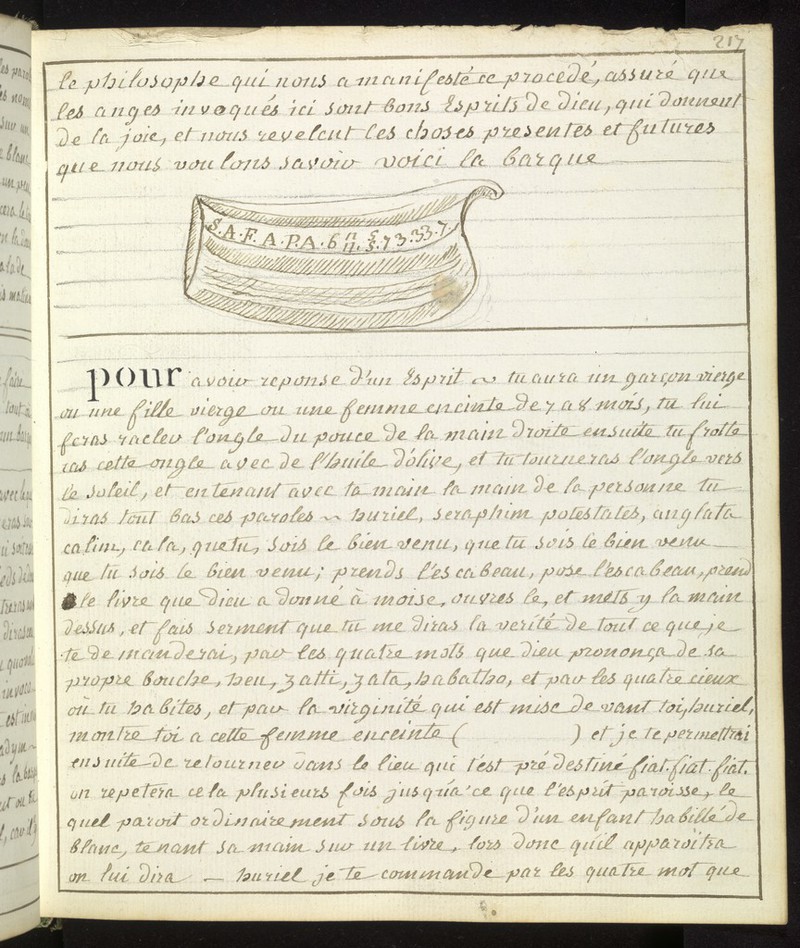 217
le philosophe qui nous a manifesté ce procedé, assuré que
les anges invoqués ici sont bons Esprits de dieu, qui donnent
de la joie, et nous revelent les choses presentes et futures
que nous voulons savoir voici la barque
S.A.F. A.P.A. 6 7 3. 33. 7.
pour avoir reponse d'un Esprit ~ tu aura un garçon vierge
ou une fille vierge ou une femme enceinte de 7 a 8 mois, tu lui
feras racler l'ongle du pouce de la main droite ensuite tu frotte
ras cette ongle avec de l'huile d'olive, et tu tourneras l'ongle vers
le soleil, et en tenant avec ta main la main de la personne tu
diras tout bas ces paroles ~ huriel, seraphim potestates, anglata
calim, cala, que tu, sois le bien venu, que tu sois le bien venu
que tu sois le bien venu; prends l'escabeau, pose l'escabeau, prend
le livre que dieu a donné à moise, ouvres le, et mets y la main
dessus, et fais serment que tu me diras la verité de tout ce que je
te demanderai, par les quatre mots que dieu prononça de sa
propre bouche, heu, zatti, zata, habatho, et par les quatre cieux
où tu habites, et par la virginité qui est mise devant toi, huriel,
montre toi a cette femme enceinte ( ) et je te permettrai
ensuite de retourner dans le lieu qui t'est prédestiné fiat. fiat. fiat.
on repetera cela plusieurs fois jusqu'a ce que l'esprit paroisse, le
quel paroit ordinairement sous la figure d'un enfant habillé de
blanc, tenant sa main sur un livre, lors donc qu'il apparoîtra
on lui dira — huriel je te commande par les quatre mot que